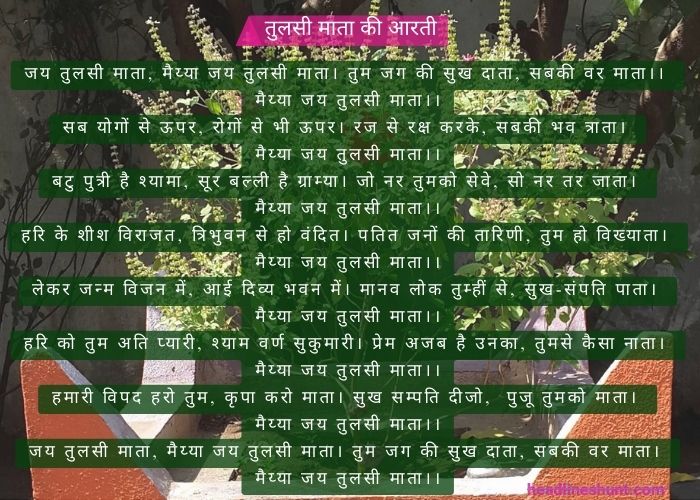 तुलसी माता की आरती
जय तुलसी माता, मैय्या जय तुलसी माता। तुम जग की सुख दाता, सबकी वर माता।।
मैय्या जय तुलसी माता।।
सब योगों से ऊपर, रोगों से भी ऊपर। रज से रक्ष करके, सबकी भव त्राता।
मैय्या जय तुलसी माता।।
बटु पुत्री है श्यामा, सूर बल्ली है ग्राम्या। जो नर तुमको सेवे, सो नर तर जाता।
मैय्या जय तुलसी माता।।
हरि के शीश विराजत, त्रिभुवन से हो वंदित। पतित जनों की तारिणी, तुम हो विख्याता।
मैय्या जय तुलसी माता।।
लेकर जन्म विजन में, आई दिव्य भवन में। मानव लोक तुम्हीं से, सुख-संपति पाता।
मैय्या जय तुलसी माता।।
हरि को तुम अति प्यारी, श्याम वर्ण सुकुमारी। प्रेम अजब है उनका, तुमसे कैसा नाता।
मैय्या जय तुलसी माता।।
हमारी विपद हरो तुम, कृपा करो माता। सुख सम्पति दीजो, पुजू तुमको माता।
मैय्या जय तुलसी माता।।
जय तुलसी माता, मैय्या जय तुलसी माता। तुम जग की सुख दाता, सबकी वर माता।
मैय्या जय तुलसी माता।।
headlineshunt.com